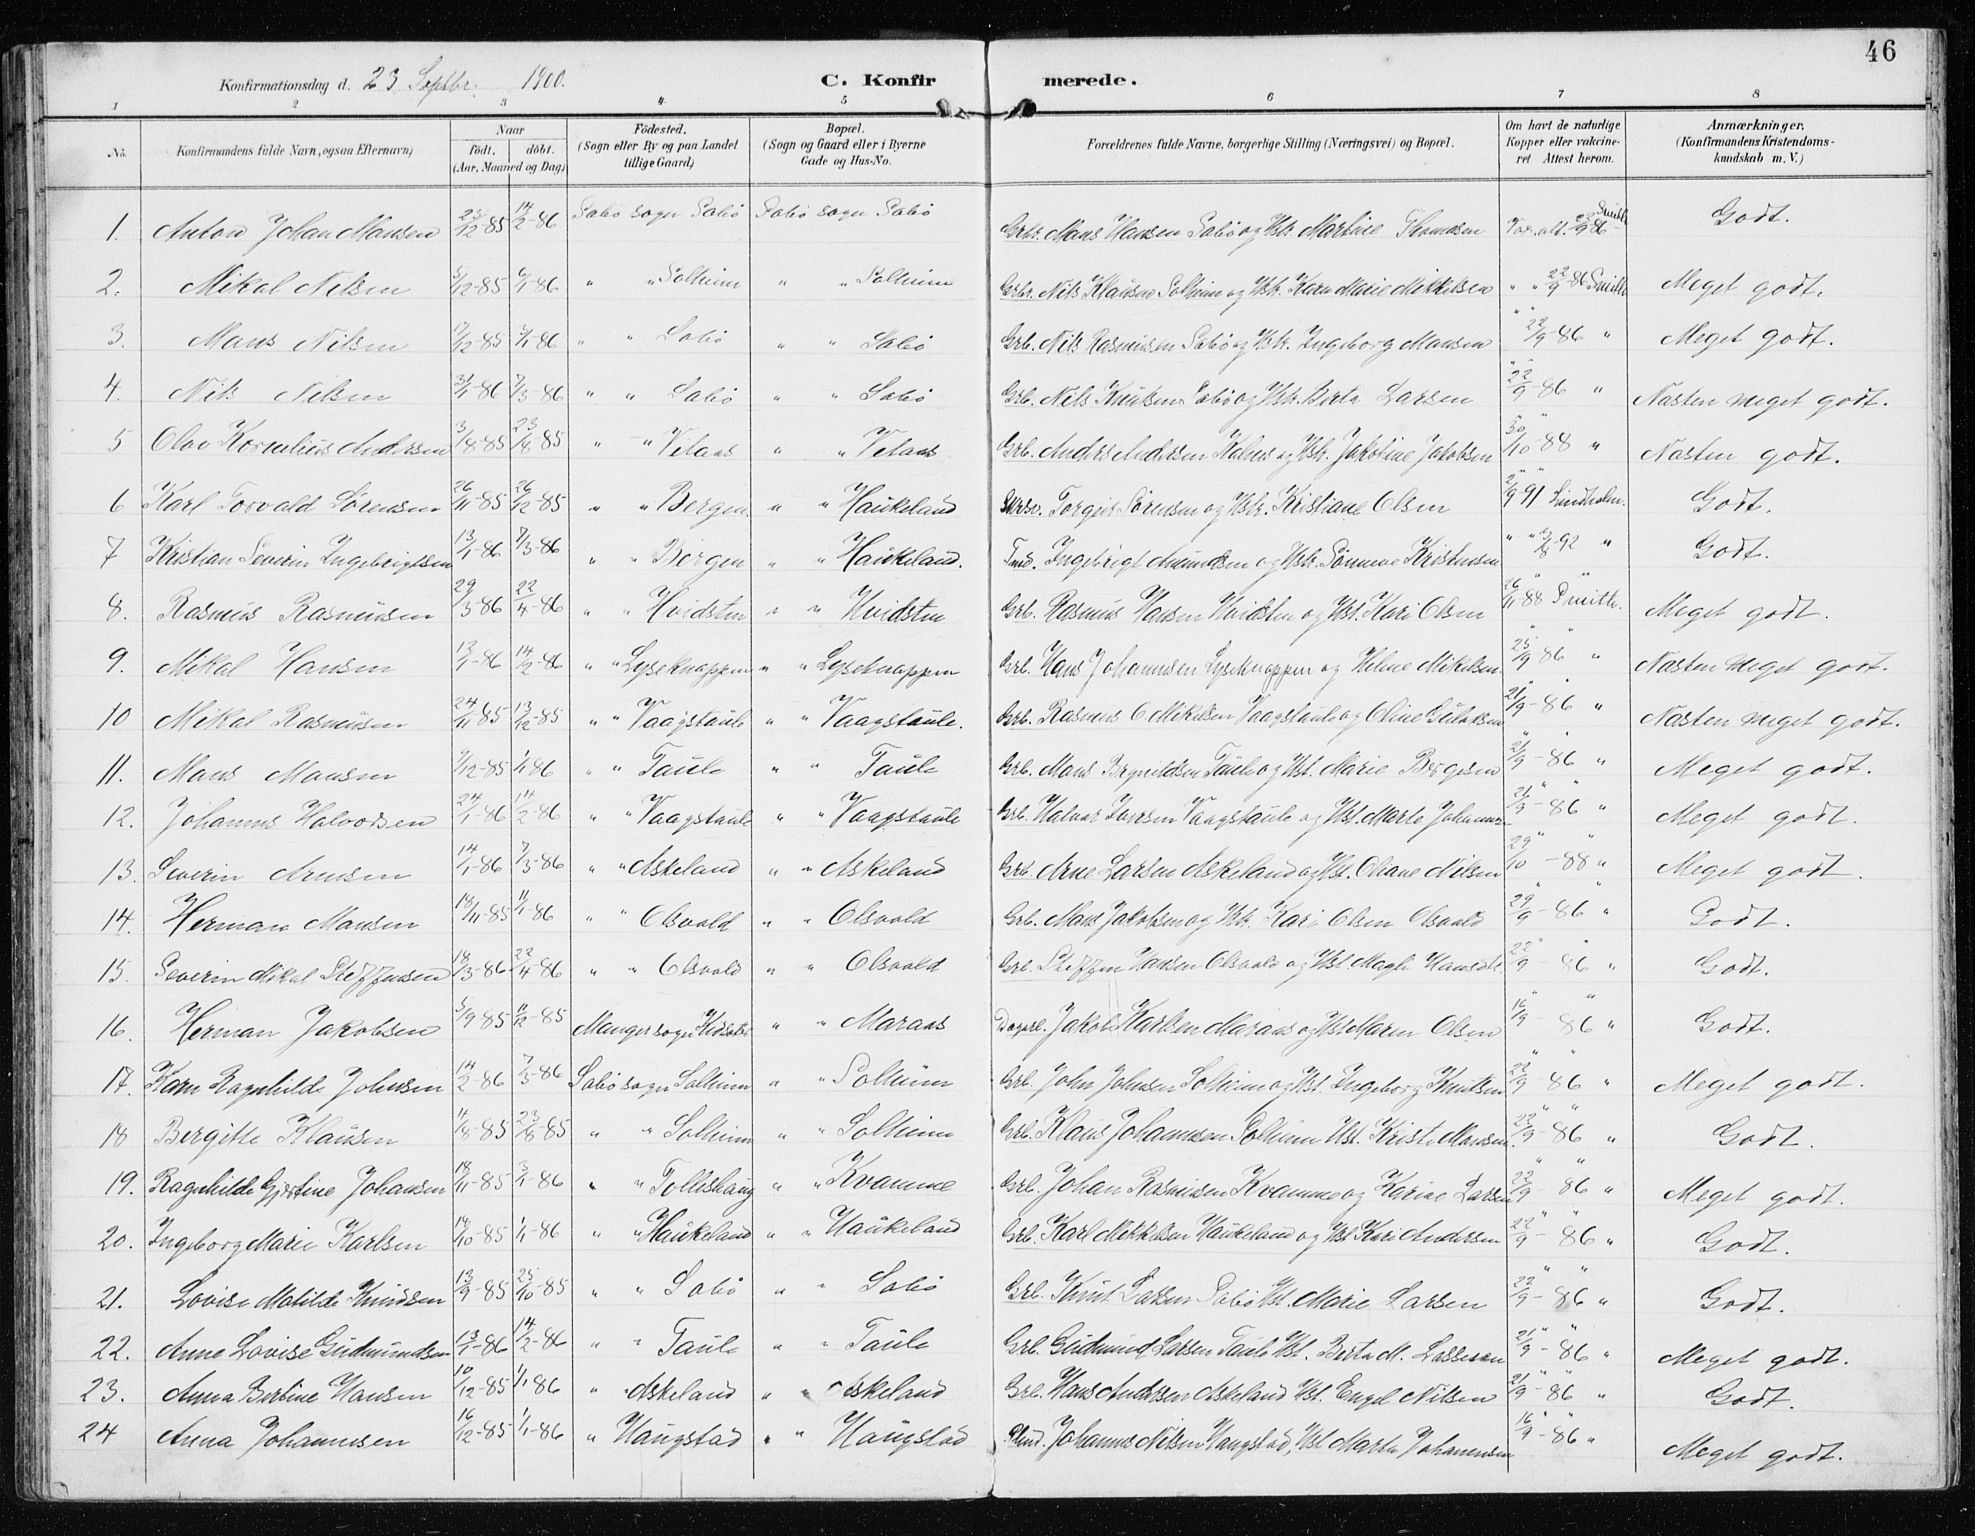 46
Konfirmationsdag d. 23 Septbr. 1900. C. Konfirmerede.
1 2 3 4 5 6 7 8
No. Konfirmandens fulde Navn, ogsaa Efternavn) Naar født. døbt. (Aar, Maaned og Dag) Fødested. (Sogn eller By og paa Landet tillige Gaard) Bopæl. (Sogn og Gaard eller i Byerne Gade og Hus-No. Forældrenes fulde Navne, borgerlige Stilling (Næringsvei) og Bopæl. Om havt de naturlige Kopper eller vakcineret Attest herom. Anmærkninger. (Konfirmandens Kristendomskundskab m. V.)
1. Anton Johan Mansen 25/12-85 14/2-86 Sæbø sogn Sæbø Sæbø sogn Sæbø Grbr. Mans Hansen Sæbø og Hstr. Martine Thomasen Vax. att. 22/9 86 Smith Godt.
2. Mikal Nilsen 5/12-85 6/1-86 " " Solheim " " Solheim Grbr. Nils Klausen Solheim og Hstr. Karn Marie Mikkelsen " " 22/9-86 Smith Meget godt.
3. Mans Nilsen 17/12-85 3/1-86 " " Sæbø " " Sæbø Grb. Nils Rasmusen Sæbø og Hstr. Ingeborg Mansen 22/9-86 " Meget godt.
4. Nils Nilsen 31/1-86 7/3-86 " " Sæbø " " Sæbø Grb. Nils Knutsen Sæbø og Hstr. Berta Larsen 22/9-86 " Næsten meget godt.
5 Olav Kornelius Andersen 3/8-85 23/8-85 " " Vetaas " " Vetaas Grb. Anders Andersen Kalnes og Hstr. Jakobine Jakobsen 30/10-88 " Næsten godt.
6 Karl Torvald Sørensen 26/11-85 26/12-85 " " Bergen " " Haukeland Torger Sørensen og Hstr. Kristiane Olsen 2/9 91 Lindholm. Godt.
7 Kristian Severin Ingebrigtsen 13/1-86 7/3-86 " " Bergen " " Haukeland. Ingebrigt Amundsen og Hstr. Sønneve Kristensen " " 92 " Godt.
8. Rasmus Rasmusen 29/3-86 22/4-86 " " Hvidsten " " Hvidsten Grb. Rasmus Hansen Hvidsten og Hst. Kari Olsen 26/11-88 Smith. Meget godt.
9. Mikal Hansen 13/1-86 14/2-86 " " Lyseknappen " " Lyseknappen Grb. Hans Johannesen Lyseknappen og Helene Mikelsen 25/9 86 " Næsten meget godt.
10 Mikal Rasmusen 24/11-85 13/12-85 " " Vaagstaule " " Vaagstaule. Grb. Rasmus O Mikelsen Vaagstaule og Oline Gulaksen 21/9-86 " Næsten meget godt.
11. Mans Mansen 9/12-85 1/1 86 " " Taule " " Taule Grb. Mans Brynildsen Taule og Hst. Marie Børgesen 21/9-86 " Meget godt.
12. Johannes Halvorsen 24/1-86 14/2-86 " " Vaagstaule " " Vaagstaule Grb. Halvor Iversen Vaagstaule og Hst. Marte Johannes- 21/9-86 " Meget godt.
13. Severin Arnesen 14/1-86 7/3-86 " " Askeland " " Askeland Grb. Arne Larsen Askeland og Hst. Oliane Nilsen 29/10-88 " Meget godt.
14. Herman Mansen 18/11-85 1/1-86 " " Olsvold " " Olsvold Grb. Mans Jakobsen og Hstr. Kari Olsen Olsvold 29/9-86 " Godt.
15. Severin Mikal Steffensen 18/3-86 22/4-86 " " Olsvold " " Olsvold Grb. Steffen Hansen Olsvold og Hst. Magli Hansdtr. 22/9-86 " Godt.
16. Herman Jakobsen 5/9 85 11/12-85 Manger sogn " " Maraas Jakob Karlsen Maraas og Hst Maren Olsen 16/9-86 " Godt.
17. Karn Ragnhilde Johnsen 14/2-86 7/3-86 Sæbø sogn Solheim " " Solheim Grb. John Johnsen Solheim og Hst. Ingeborg Knutsen 22/9 86 " Meget godt.
18 Bergitte Klausen 11/8-85 23/8-85 " " Solheim " " Solheim Grb. Klaus Johannesen Solheim Hst. Kristi Mansen 22/9-86 " Godt.
19. Ragnhilde Gjertine Johansen 18/11-85 3/1-86 " " Tolleshaug " " Kvamme Grb. Johan Rasmusen Kvamme og Karine Larsen 22/9-86 " Meget godt.
20. Ingeborg Marie Karlsen 19/10-85 1/1-86 " " Haukeland " " Haukeland Grb. Karl Mikkelsen Haukeland og Hst Kari Andersen 22/9-86 " Godt.
21. Lovise Matilde Knudsen 13/9-85 25/10-85 " " Sæbø " " Sæbø Grb. Knut Larsen Sæbø Hst. Marie Larsen 22/9-86 " Godt.
22. Anne Lovise Gudmundsen 13/1-86 14/2-86 " " Taule " " Taule Grb. Gudmund Larsen Taule Hst. Berta M. Lassesen 21/9-86 " Meget godt.
23. Anna Bertine Hansen 10/12-85 1/1 86 " " Askeland " " Askeland Grb. Hans Andersen Askeland Hst. Engel Nilsen 21/9-86 " Godt.
24 Anna Johannesen 16/12-85 1/1-86 " Haugstad " " Haugstad Johannes Nilsen Haugstad, Hst Marta Johannesen 16/9-86 " Meget godt.